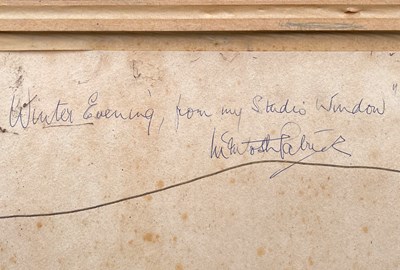 Winter Evening, from my Studio Window"
McIntosh Patrick